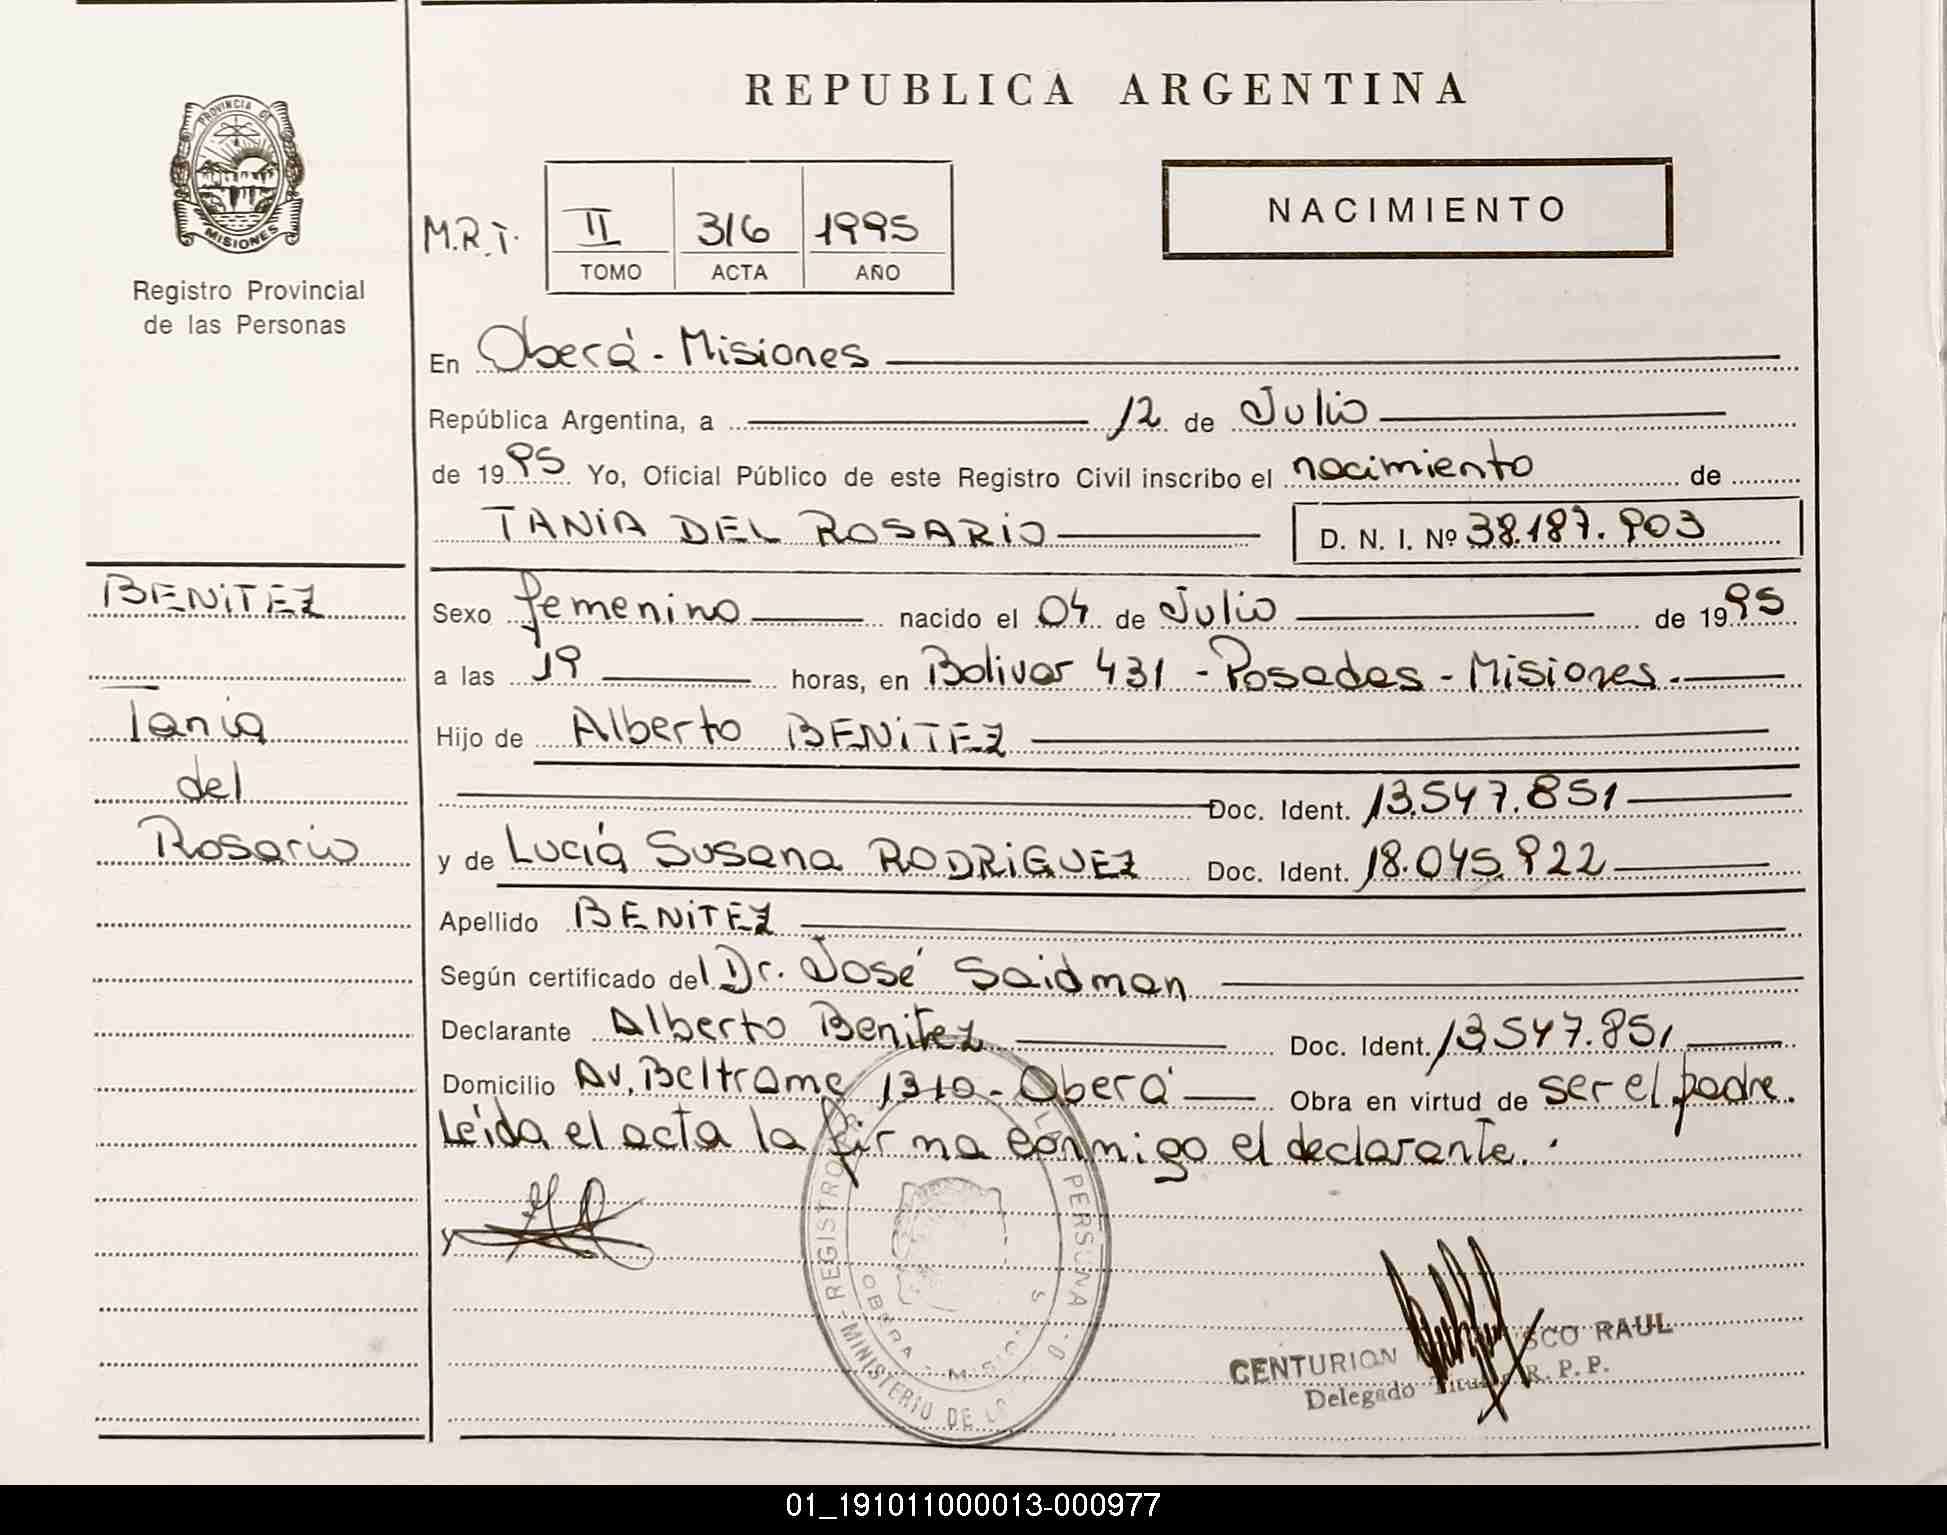 REPUBLICA ARGENTINA
PROVINCIA DE
MISIONES
Registro Provincial
de las Personas
NACIMIENTO
M.R.T. II 316 1995
TOMO ACTA AÑO
En Oberá - Misiones
República Argentina, a 12 de Julio
de 1995 Yo, Oficial Público de este Registro Civil inscribo el nacimiento de
TANIA DEL ROSARIO D. N. I. Nº 38.187.903
BENITEZ
Tania
del
Rosario
Sexo femenino nacido el 04 de Julio de 1995
a las 19 horas, en Bolivar 431 - Posadas - Misiones.
Hijo de Alberto BENITEZ
Doc. Ident. 13.547.851
y de Lucía Susana RODRIGUEZ Doc. Ident. 18.045.922
Apellido BENITEZ
Según certificado del Dr. José Saidman
Declarante Alberto Benitez Doc. Ident. 13.547.851
Domicilio Av. Beltrame 1310 - Oberá Obra en virtud de ser el padre.
Leída el acta la firma conmigo el declarante.
REGISTRO LA PERSONA
MINISTERIO DE
OBERA
CENTURION RAUL
Delegado R. P. P.
01_191011000013-000977